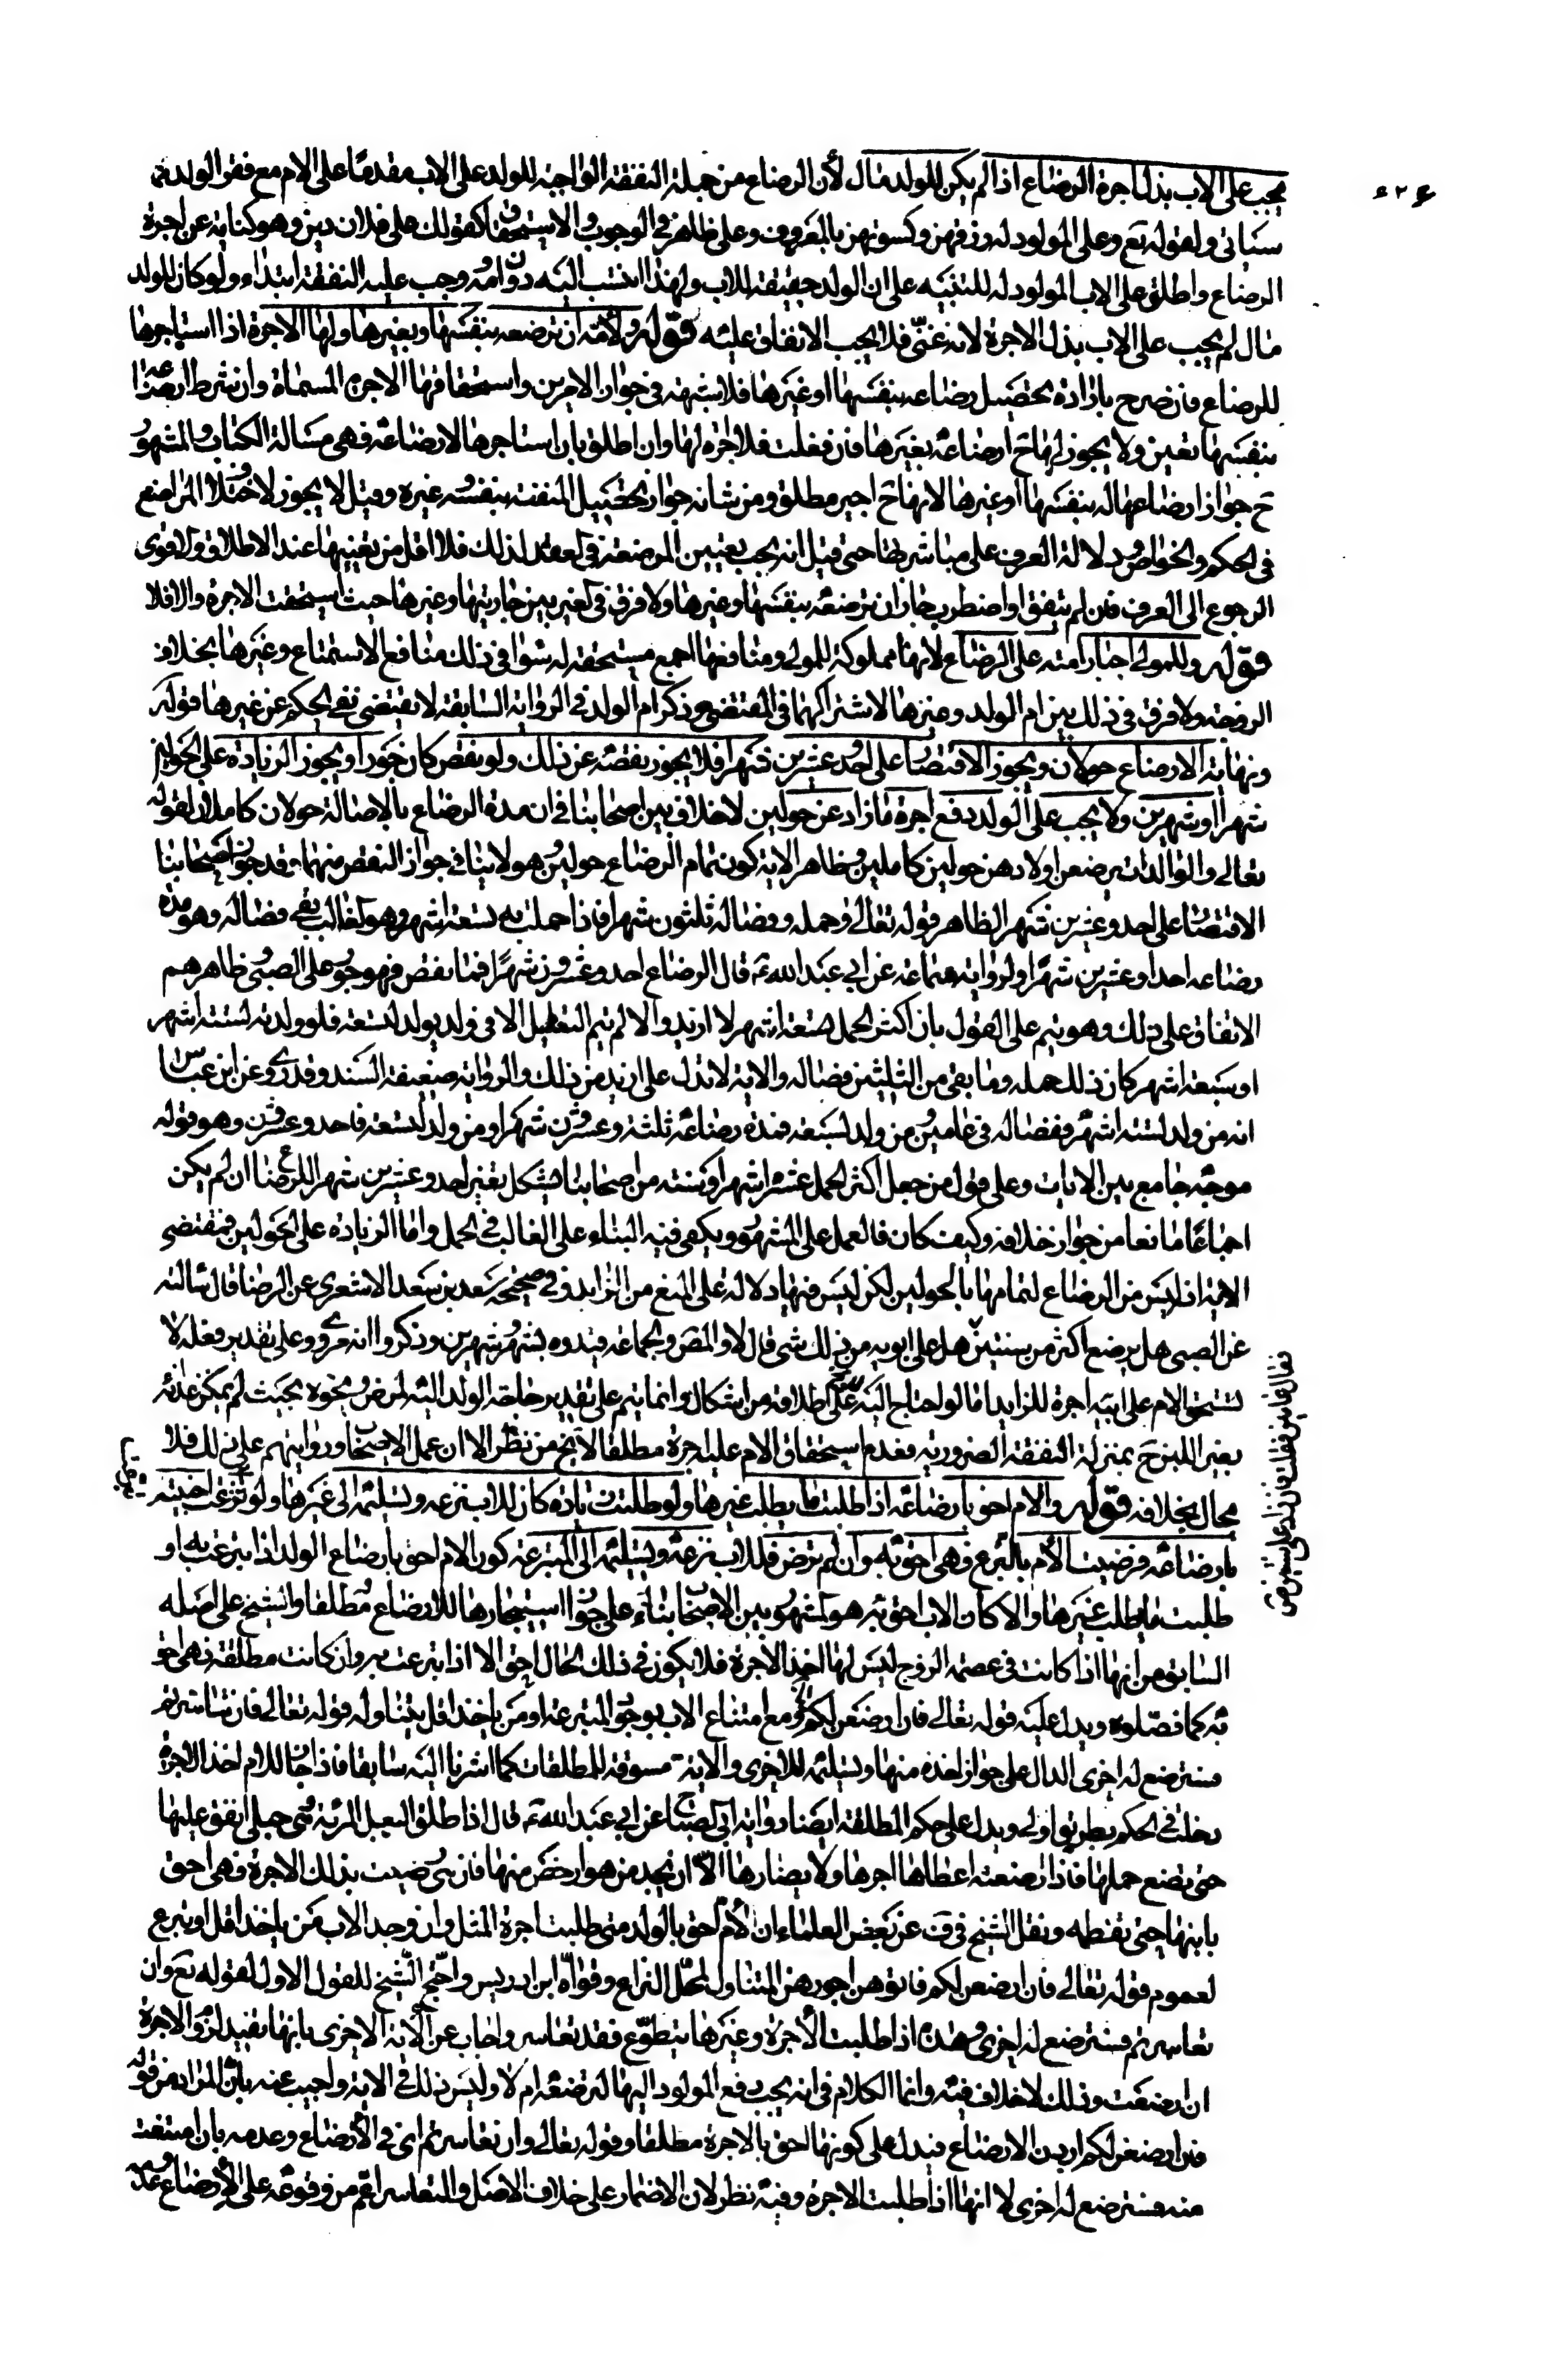 ۴۲۶
يجب على الاب بذل اجرة الرضاع اذا لم يكن للولد مال لأن الرضاع من جملة النفقة الواجبة للولد على الاب مقدمًا على الام مع فقر الولد كما
سياتى ولقوله تع وعلى المولود له رزقهن وكسوتهن بالمعروف وعلى ظاهر في الوجوب والاستحقاق كقولك على فلان دين وهو كناية عن اجرة
الرضاع واطلق على الاب المولود له للتنبيه على ان الولد حقيقة للاب ولهذا انتسب اليه دون امه وجب عليه النفقة ابتداء ولو كان للولد
مال لم يجب على الاب بذل الاجرة لانه غنىّ فلا يجب الانفاق عليه قوله ولامه ان ترضعه بنفسها وبغيرها ولها الاجرة اذا استاجرها
للرضاع فان صرح بارادة تحصيل رضاعه بنفسها او غيرها فلا شبهة في جواز الامرين واستحقاقها الاجرة المسماة وان شرط ارضاعه
بنفسها تعين ولا يجوز لها ح ارضاعه بغيرها فان فعلت فلا اجرة لها وان اطلق بان استاجرها لارضاعه فهى مسالة الكتاب والمشهور
ح جواز ارضاعها له بنفسها او غيرها لانها ح اجير مطلق ومن شانه جواز تحصيل المنفعة بنفسه وغيره وقيل لا يجوز لاختلاف المراضع
في الحكم والخواص ودلالة العرف على مباشرتها حتى قيل انه يجب تعيين المرضعة في العقد لذلك فلا اقل من تعيينها عند الاطلاق والاقوى
الرجوع الى العرف فان لم يتفق او اضطرب جاز ان ترضعه بنفسها وغيرها ولا فرق في الغير بين جاريتها وغيرها حيث استحقت الاجرة والا فلا
قوله وللمولى اجبار امته على الرضاع لانها مملوكة للمولى ومنافعها اجمع مستحقة له سواء في ذلك منافع الاستمتاع وغيرها بخلاف
الزوجة ولا فرق في ذلك بين ام الولد وغيرها لاشتراكهما في المقتضى وذكر ام الولد في الرواية السابقة لا يقتضى نفى الحكم عن غيرها قوله
ونهاية الارضاع حولان ويجوز الاقتصار على احد وعشرين شهرا فلا يجوز نقصه عن ذلك ولو نقص كان جورا ويجوز الزيادة على الحولين
شهرا او شهرين ولا يجب على الوالد دفع اجرة ما زاد عن حولين لا خلاف بين اصحابنا في ان مدة الرضاع بالاصالة حولان كاملان لقوله
تعالى والوالدات يرضعن اولادهن حولين كاملين وظاهر الاية كون تمام الرضاع حولين وهو لا ينافي جواز النقص منهما وقد جوز اصحابنا
الاقتصار على احد وعشرين شهرا لظاهر قوله تعالى وحمله وفصاله ثلثون شهرا فاذا حملت به تسعة اشهر وهو الغالب بقى فصاله وهو مدة
رضاعه احدا وعشرين شهرًا ولرواية سماعة عن ابى عبد الله ع قال الرضاع احد وعشرون شهرًا فما نقص فهو جور على الصبى وظاهرهم
الاتفاق على ذلك وهو يتم على القول بان اكثر الحمل تسعة اشهر لا ازيد والا لم يتم التعليل الا في ولد يولد لتسعة فلو ولدته لستة اشهر
او سبعة اشهر كان ذلك حمله وما بقى من الثلثين فصاله والاية لا تدل على ازيد من ذلك والرواية ضعيفة السند وقد روى عن ابن عباس
انه من ولد لستة اشهر ففصاله في عامين ومن ولد لسبعة فمدة رضاعه ثلثة وعشرون شهرا ومن ولد لتسعة فاحد وعشرون وهو قوله
موجّه جامع بين الايات وعلى قول من جعل اكثر الحمل عشرة اشهر او سنة من اصحابنا يشكل تعين احد وعشرين شهرا للرضاع ان لم يكن
اجماعًا مانعا من جواز خلافه وكيف كان فالعمل على المشهور ويكفى فيه البناء على الغالب في الحمل واما الزيادة على الحولين فمقتضى
الاية انه ليس من الرضاع لتمامها بالحولين لكن ليس فيها دلالة على المنع من الزايد وفي صحيحة سعد بن سعد الاشعرى عن الرضا قال سالته
عن الصبى هل يرضع اكثر من سنتين هل على ابويه من ذلك شى قال لا والمص والجماعة قيدوه بشهر وشهرين وذكروا انه مروى وعلى تقدير فعله لا
تستحق الام على ابيه اجرة للزايد اما لو احتاج اليه على اطلاقه من اشكال وانما يتم على تقدير حاجة الولد اليه لمرض ونحوه بحيث لم يمكن غذائه
بغير اللبن ح بمنزلة النفقة الضرورية فعدم استحقاق الام عليه اجرة مطلقا لا يخ من نظر الا ان عمل الاصحاب وروايتهم على ذلك فلا
مجال بخلافه قوله والام احق بارضاعه اذا طلبت ما يطلب غيرها ولو طلبت زيادة كان للاب نزعه وتسليمه الى غيرها ولو تبرعت اجنبية
بارضاعه فرضيت الام بالتبرع فهى احق به وان لم ترض فللاب نزعه وتسليمه الى المتبرعة كون الام احق بارضاع الولد اذا تبرعت به او
طلبت ما يطلب غيرها والا كان الاب احق به هو المشهور بين الاصحاب بناء على جواز استيجارها للارضاع مطلقا والشيخ على اصله
السابق من انها اذا كانت في عصمة الزوج ليس لها اخذ الاجرة فلا يكون في ذلك الحال احق الا اذا تبرعت به وان كانت مطلقة فهى احق
به كما فصلوه ويدل عليه قوله تعالى فان ارضعن لكم ومع امتناع الاب بوجود المتبرعة او من ياخذ اقل يتناوله قوله تعالى فان تعاسرتم
فسترضع له اخرى الدال على جواز اخذه منها وتسليمه للاخرى والاية مسوقة للمطلقات كما اشرنا اليه سابقا فاذا جاز للام اخذ الاجرة
دخلت في الحكم بطريق اولى ويدل على حكم المطلقة ايضا رواية ابى الصباح عن ابى عبد الله ع قال اذا طلق الرجل المرئة وهى حبلى انفق عليها
حتى تضع حملها فاذا ارضعته اعطاها اجرها ولا يضارها الّا ان يجد من هو ارخص منها فان هى رضيت بذلك الاجرة فهى احق
بابنها حتى تفطمه ونقل الشيخ في ف عن بعض العلماء ان الام احق بالولد متى طلبت اجرة المثل وان وجد الاب من ياخذ اقل او تبرع
لعموم قوله تعالى فان ارضعن لكم فاتوهن اجورهن المتناول لمحل النزاع وقوّاه ابن ادريس واحتج الشيخ للقول الاول لقوله تع وان
تعاسرتم فسترضع له اخرى وهذه اذا طلبت الاجرة وغيرها يتطوّع فقد تعاسر واجاب عن الاية الاخرى بانها تفيد لزوم الاجرة
ان ارضعت وذلك لا خلاف فيه وانما الكلام في انه يجب دفع المولود اليها لترضعه ام لا وليس ذلك في الاية واجيب عنه بان المراد من قوله
فان ارضعن لكم اردن الارضاع فيدل على كونها احق بالاجرة مطلقا وقوله تعالى وان تعاسرتم اى في الارضاع وعدمه بان امتنعت
منه فسترضع له اخرى لا انها اذا طلبت الاجرة وفيه نظر لان الاضمار على خلاف الاصل والتعاسر اعم من وقوعه على الارضاع وعدمه